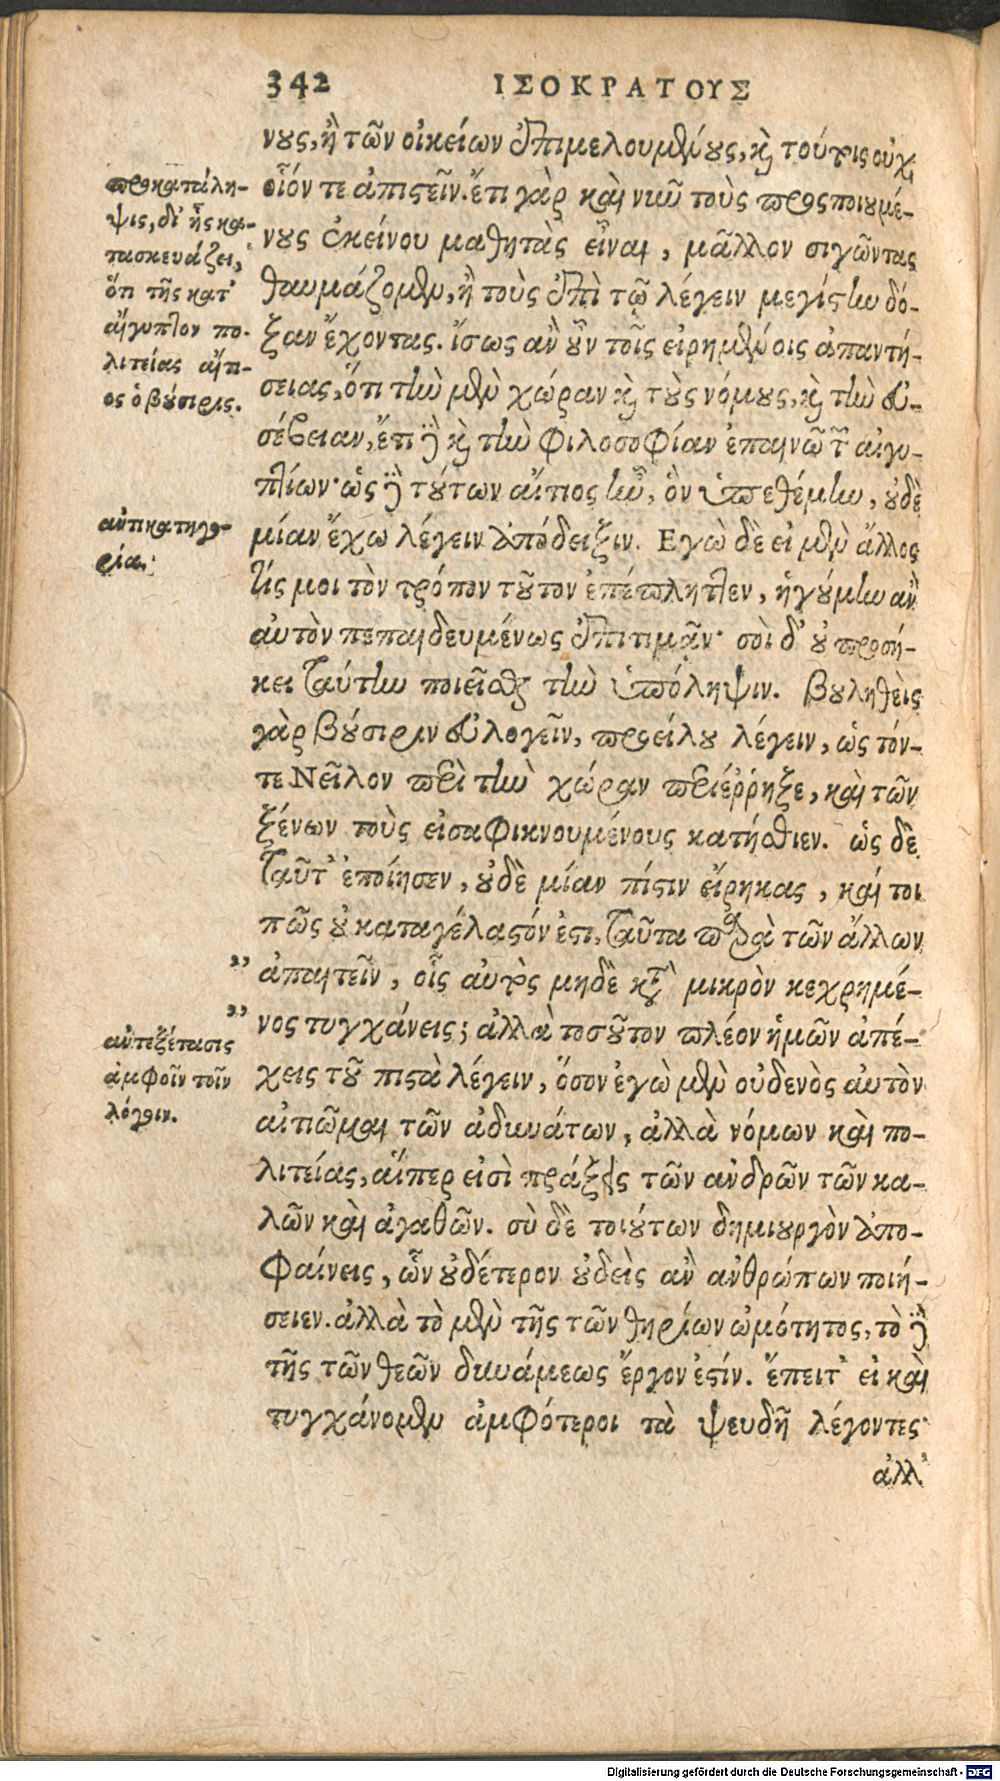 342 ΙΣΟΚΡΑΤΟΥΣ
νους, ἢ τῶν οἰκείων ἐπιμελουμένους, καὶ τούτοις οὐχ
οἷόν τε ἀπιστεῖν. ἔτι γὰρ καὶ νῦν τοὺς προσποιουμέ-
νους ἐκείνου μαθητὰς εἶναι, μᾶλλον σιγῶντας
θαυμάζομεν, ἢ τοὺς ἐπὶ τῷ λέγειν μεγίστην δό-
ξαν ἔχοντας. ἴσως ἂν οὖν τοῖς εἰρημένοις ἀπαντή-
σειας, ὅτι τὴν μὲν χώραν καὶ τοὺς νόμους, καὶ τὴν εὐ-
σέβειαν, ἔτι δὲ καὶ τὴν φιλοσοφίαν ἐπαινῶ τῶν αἰγυ-
πτίων· ὡς δὲ τούτων αἴτιος ἦν, ὃν ὑπεθέμην, οὐδε
μίαν ἔχω λέγειν ἀπόδειξιν. Εγὼ δὲ εἰ μὲν ἄλλος
τίς μοι τὸν τρόπον τοῦτον ἐπέπληττεν, ἡγούμην ἂν
αὐτὸν πεπαιδευμένως ἐπιτιμᾶν· σοὶ δ' οὐ προσή-
κει ταύτην ποιεῖσθαι τὴν ὑπόληψιν. βουληθεὶς
γὰρ βούσιριν εὐλογεῖν, προείλου λέγειν, ὡς τόν-
τε Νεῖλον περὶ τὴν χώραν περιέῤῥηξε, καὶ τῶν
ξένων τοὺς εἰσαφικνουμένους κατήσθιεν. ὡς δὲ
ταῦτ' ἐποίησεν, οὐδε μίαν πίστιν εἴρηκας, καί τοι
πῶς οὐ καταγέλαστόν ἐστι, ταῦτα παρὰ τῶν ἄλλων
" ἀπαιτεῖν, οἷς αὐτὸς μηδὲ κατὰ μικρὸν κεχρημέ-
" νος τυγχάνεις; ἀλλὰ τοσοῦτον πλέον ἡμῶν ἀπέ-
χεις τοῦ πιστὰ λέγειν, ὅσον ἐγὼ μὲν οὐδενὸς αὐτὸν
αἰτιῶμαι τῶν ἀδυνάτων, ἀλλὰ νόμων καὶ πο-
λιτείας, αἵπερ εἰσὶ πράξεις τῶν ἀνδρῶν τῶν κα-
λῶν καὶ ἀγαθῶν. σὺ δὲ τοιούτων δημιουργὸν ἀπο-
φαίνεις, ὧν οὐδέτερον οὐδεὶς ἂν ἀνθρώπων ποιή-
σειεν. ἀλλὰ τὸ μὲν τῆς τῶν θηρίων ὠμότητος, τὸ δὲ
τῆς τῶν θεῶν δυνάμεως ἔργον ἐστίν. ἔπειτ' εἰ καὶ
τυγχάνομεν ἀμφότεροι τὰ ψευδῆ λέγοντες·
ἀλλ'
προκατάλη-
ψις, δι' ἧς κα-
τασκευάζει,
ὅτι τῆς κατ'
αἴγυπτον πο-
λιτείας αἴτι-
ος ὁ βούσιρις.
ἀντικατηγο-
ρία.
ἀντεξέτασις
ἀμφοῖν τοῖν
λόγοιν.
Digitalisierung gefördert durch die Deutsche Forschungsgemeinschaft - DFG